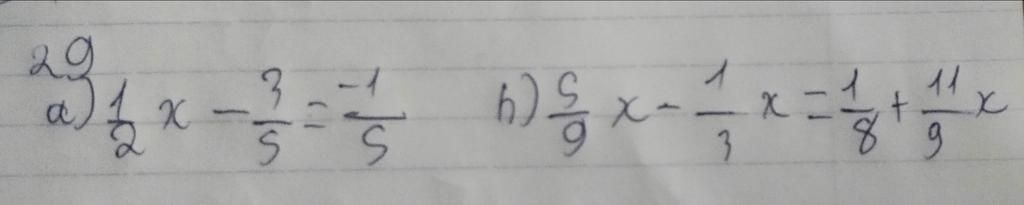 29
a) 1/2 x - 3/5 = -1/5 b) 5/9 x - 1/3 x = 1/8 + 11/9 x